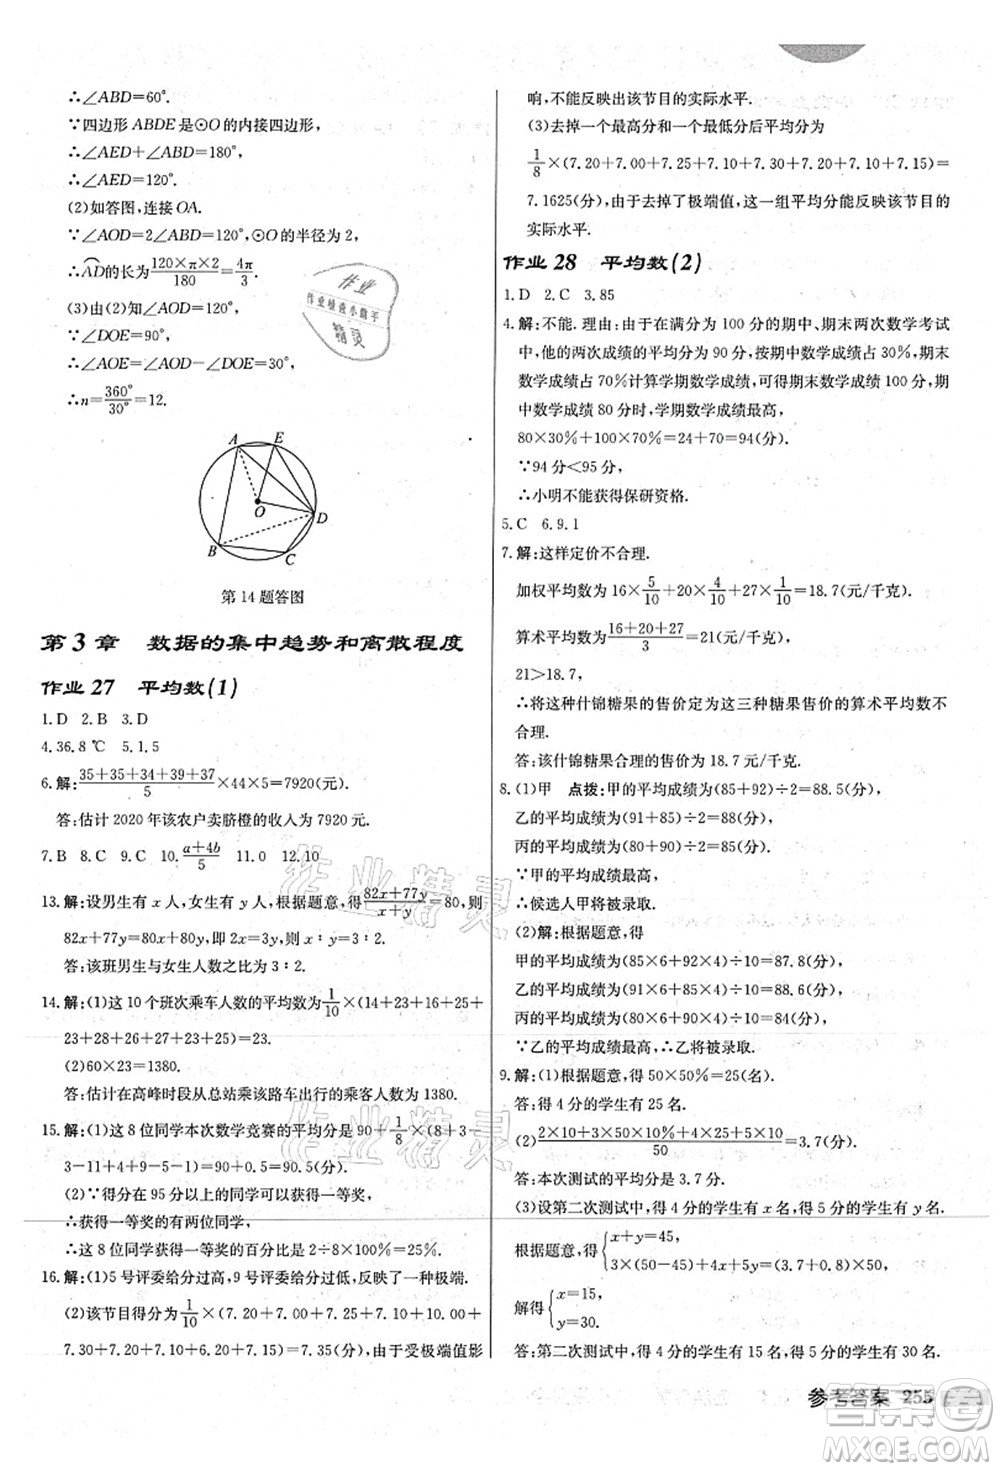 ∴∠ABD=60°.
∵四边形 ABDE是⊙O的内接四边形,
∴∠AED+∠ABD=180°,
∴∠AED=120°.
(2)如答图,连接OA.
∵∠AOD=2∠ABD=120°,⊙O的半径为 2,
∴AD的长为120×π×2/180=4π/3.
(3)由(2)知∠AOD=120°,
∵∠DOE=90°,
∴∠AOE=∠AOD-∠DOE=30°,
∴n=360°/30°=12.
A E
O
D
B
C
第 14 题答图
第 3 章 数据的集中趋势和离散程度
作业 27 平均数(1)
1.D 2.B 3.D
4.36.8 ℃ 5.1.5
6.解:35+35+34+39+37/5×44×5=7920(元).
答:估计 2020 年该农户卖脐橙的收入为 7920 元.
7.B 8.C 9.C 10.a+4b/5 11.0 12.10
13.解:设男生有 x 人,女生有 y 人,根据题意,得82x+77y/x+y=80,则
82x+77y=80x+80y,即 2x=3y,则 x∶y=3∶2.
答:该班男生与女生人数之比为 3∶2.
14.解:(1)这 10 个班次乘车人数的平均数为1/10×(14+23+16+25+
23+28+26+27+23+25)=23.
(2)60×23=1380.
答:估计在高峰时段从总站乘该路车出行的乘客人数为 1380.
15.解:(1)这 8 位同学本次数学竞赛的平均分是 90+1/8×(8+3-
3-11+4+9-5-1)=90+0.5=90.5(分).
(2)∵得分在 95 分以上的同学可以获得一等奖,
∴获得一等奖的有两位同学,
∴这 8 位同学获得一等奖的百分比是 2÷8×100%=25%.
16.解:(1)5 号评委给分过高,9 号评委给分过低,反映了一种极端.
(2)该节目得分为1/10×(7.20+7.25+7.00+7.10+10.00+
7.30+7.20+7.10+6.20+7.15)=7.35(分),由于受极端值影
响,不能反映出该节目的实际水平.
(3)去掉一个最高分和一个最低分后平均分为
1/8×(7.20+7.00+7.25+7.10+7.30+7.20+7.10+7.15)=
7.1625(分),由于去掉了极端值,这一组平均分能反映该节目的
实际水平.
作业 28 平均数(2)
1.D 2.C 3.85
4.解:不能. 理由:由于在满分为 100 分的期中、期末两次数学考试
中,他的两次成绩的平均分为 90 分,按期中数学成绩占 30%,期末
数学成绩占 70%计算学期数学成绩,可得期末数学成绩 100 分,期
中数学成绩 80 分时,学期数学成绩最高,
80×30%+100×70%=24+70=94(分).
∵94 分<95 分,
∴小明不能获得保研资格.
5.C 6.9.1
7.解:这样定价不合理.
加权平均数为 16×5/10+20×4/10+27×1/10=18.7(元/千克).
算术平均数为16+20+27/3=21(元/千克).
21>18.7.
∴将这种什锦糖果的售价定为这三种糖果售价的算术平均数不
合理.
答:该什锦糖果合理的售价为 18.7 元/千克.
8.(1)甲 点拨:甲的平均成绩为(85+92)÷2=88.5(分),
乙的平均成绩为(91+85)÷2=88(分),
丙的平均成绩为(80+90)÷2=85(分),
∵甲的平均成绩最高,
∴候选人甲将被录取.
(2)解:根据题意,得
甲的平均成绩为(85×6+92×4)÷10=87.8(分),
乙的平均成绩为(91×6+85×4)÷10=88.6(分),
丙的平均成绩为(80×6+90×4)÷10=84(分),
∵乙的平均成绩最高,∴乙将被录取.
9.解:(1)根据题意,得50×50%=25(名).
答:得 4 分的学生有 25 名.
(2)2×10+3×50×10%+4×25+5×10/50=3.7(分).
答:本次测试的平均分是 3.7 分.
(3)设第二次测试中,得 4 分的学生有 x 名,得 5 分的学生有 y 名.
根据题意,得{x+y=45,
3×5+4x+5y=(3.7+0.8)×50,
解得{x=15,
y=30.
答:第二次测试中得 4 分的学生有 15 名,得 5 分的学生有 30 名.
参考答案 255
作业精灵
作业精灵
答案圈
MXQE.COM